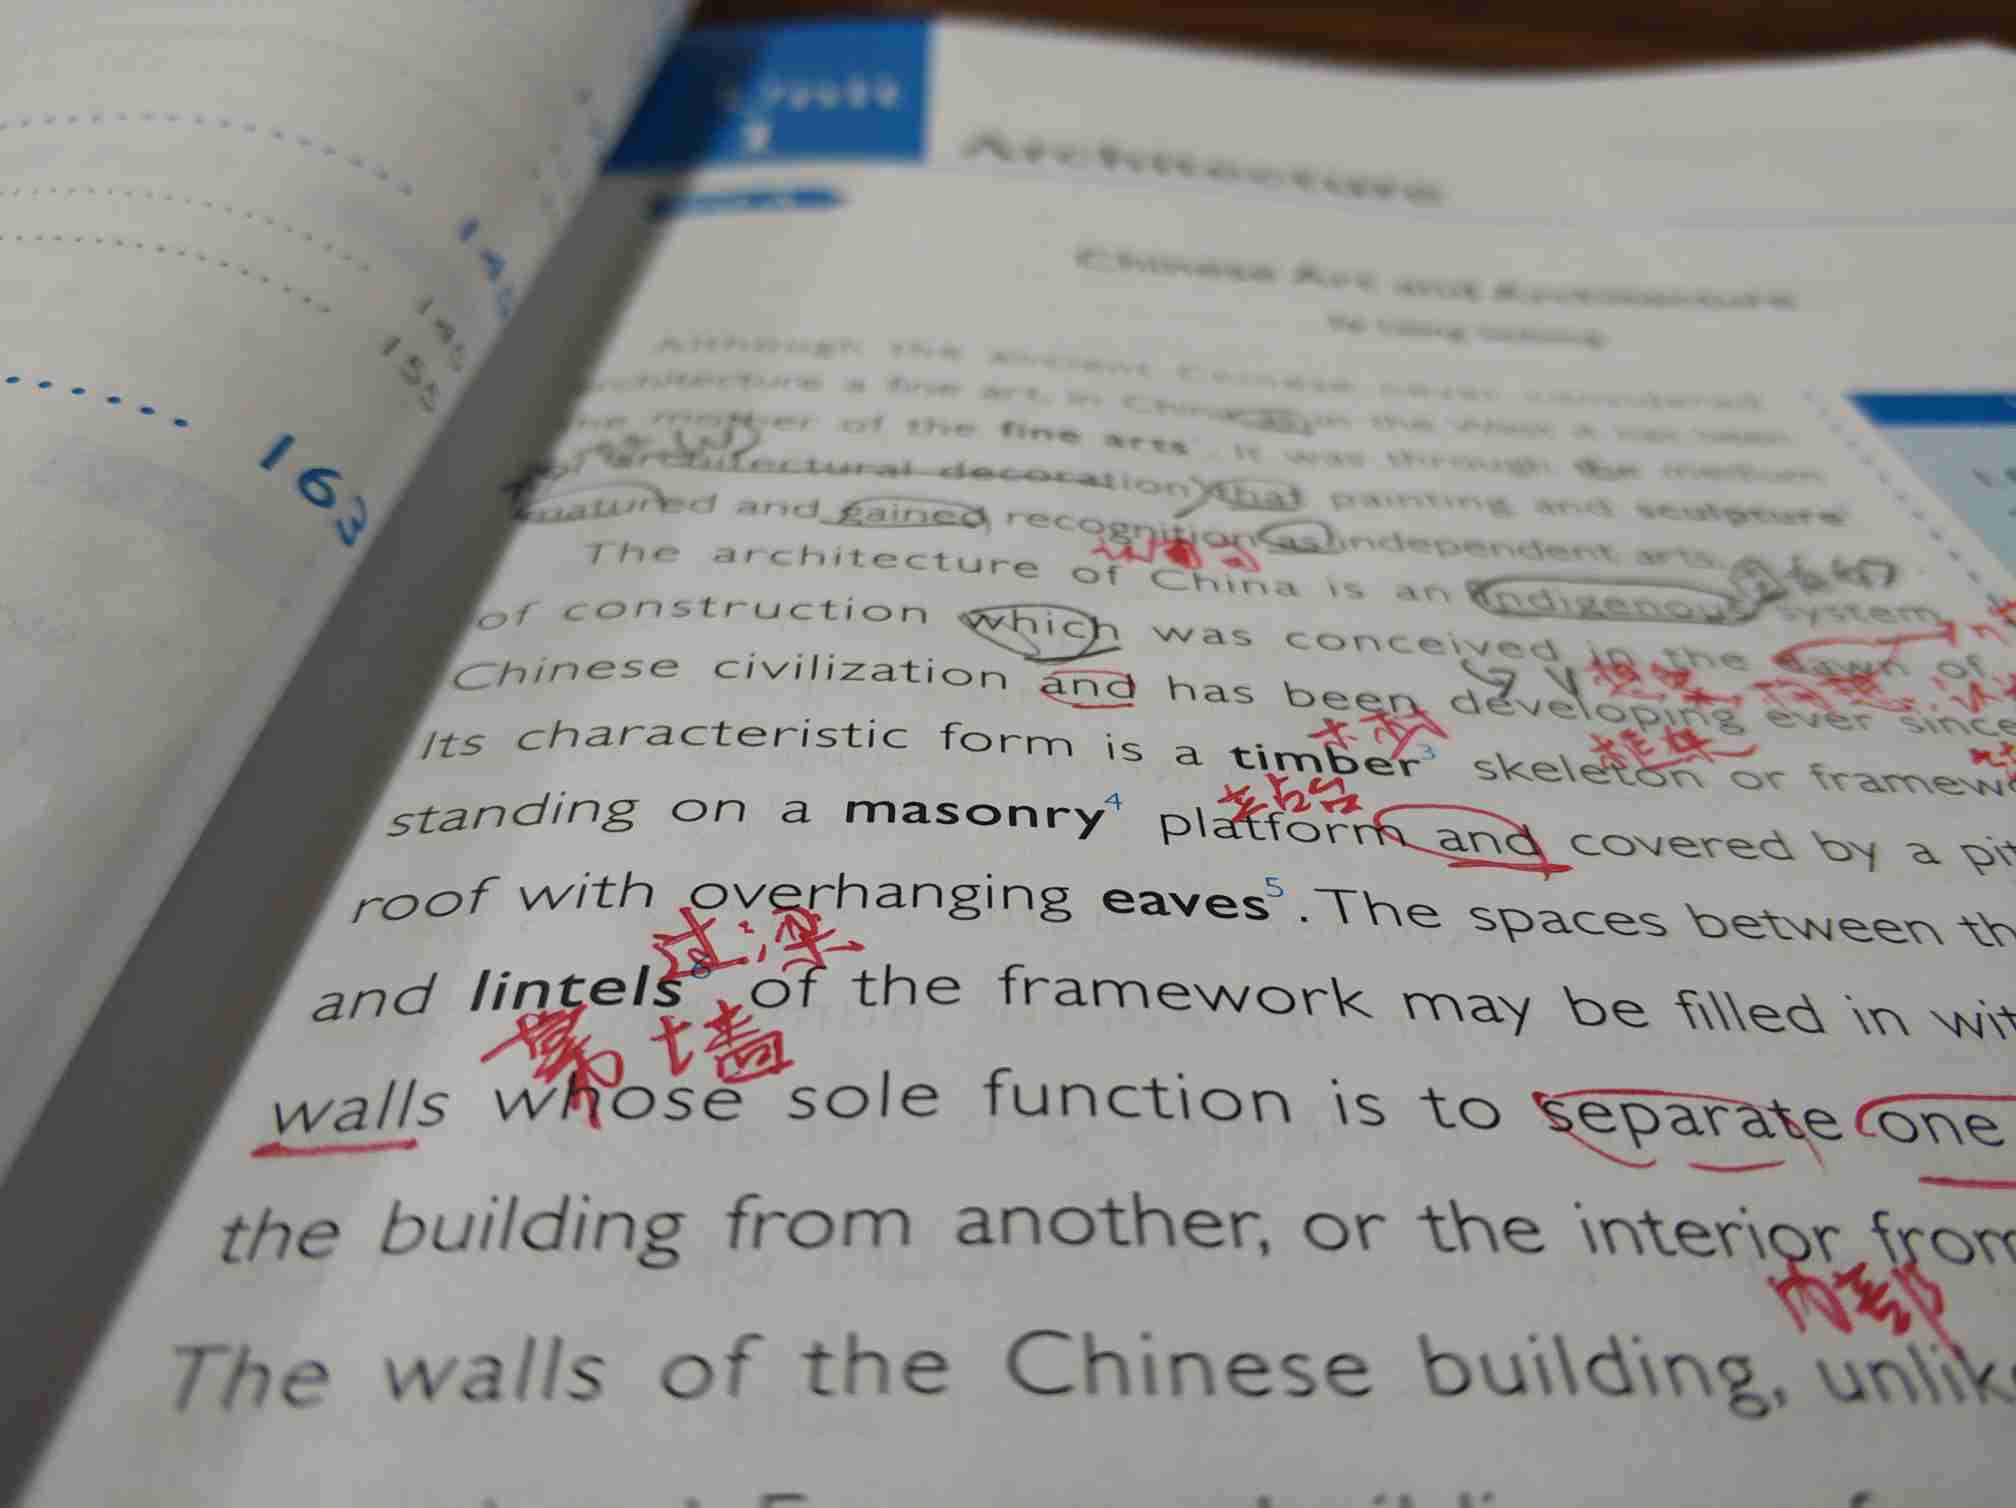 145
155
163
Architecture
Chinese Art and Architecture
Although the ancient Chinese never considered
architecture a fine art, in China as in the West it has been
the mother of the fine arts. It was through the medium
of architectural decoration that painting and sculpture
matured and gained recognition as independent arts.
认可
The architecture of China is an indigenous system
of construction which was conceived in the dawn of
Chinese civilization and has been developing ever since
木材
Its characteristic form is a timber3 skeleton or framewo
框架
基台
standing on a masonry4 platform and covered by a pit
roof with overhanging eaves5. The spaces between th
过梁
and lintels6 of the framework may be filled in wit
幕墙
walls whose sole function is to separate one
the building from another, or the interior from
内部
The walls of the Chinese building, unlike